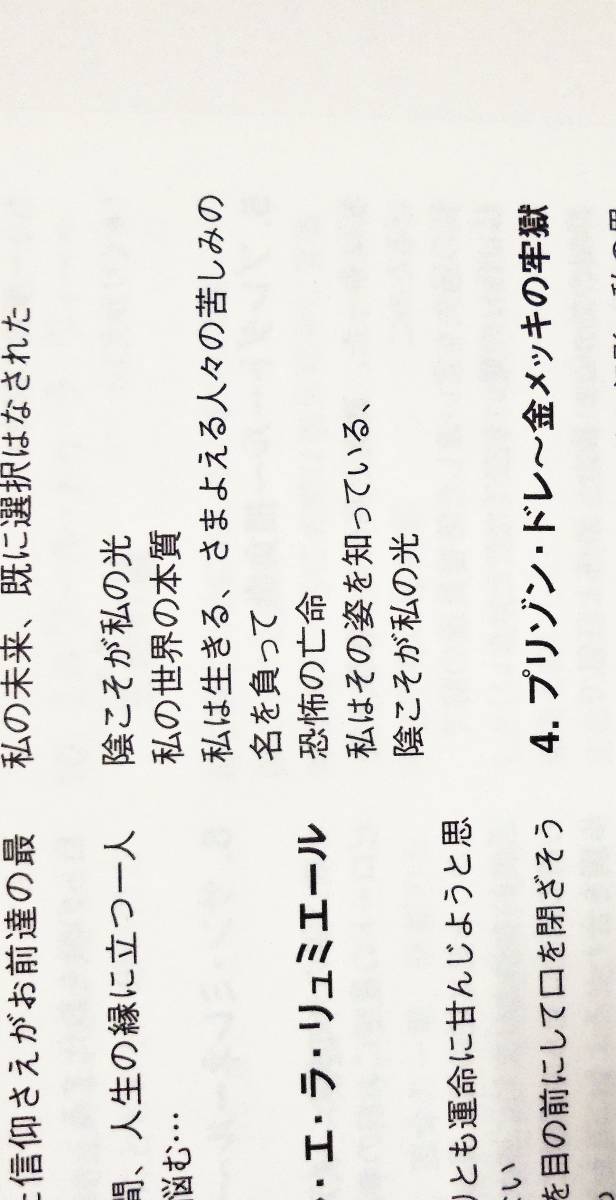 に信仰さえがお前達の最
間、人生の縁に立つ一人
悩む…
・エ・ラ・リュミエール
りとも運命に甘んじようと思
い
を目の前にして口を閉ざそう
私の未来、既に選択はなされた
陰こそが私の光
私の世界の本質
私は生きる、さまよえる人々の苦しみの
名を負って
恐怖の亡命
私はその姿を知っている、
陰こそが私の光
4. プリゾン・ドレ〜金メッキの牢獄